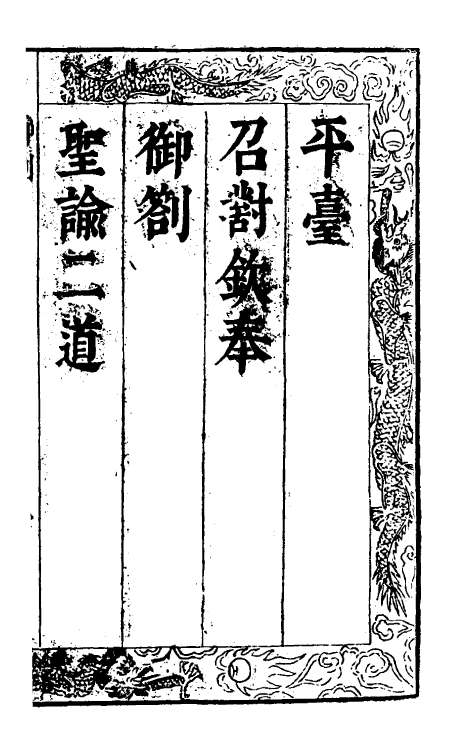 平臺
召對欽奉
御劄
聖諭二道